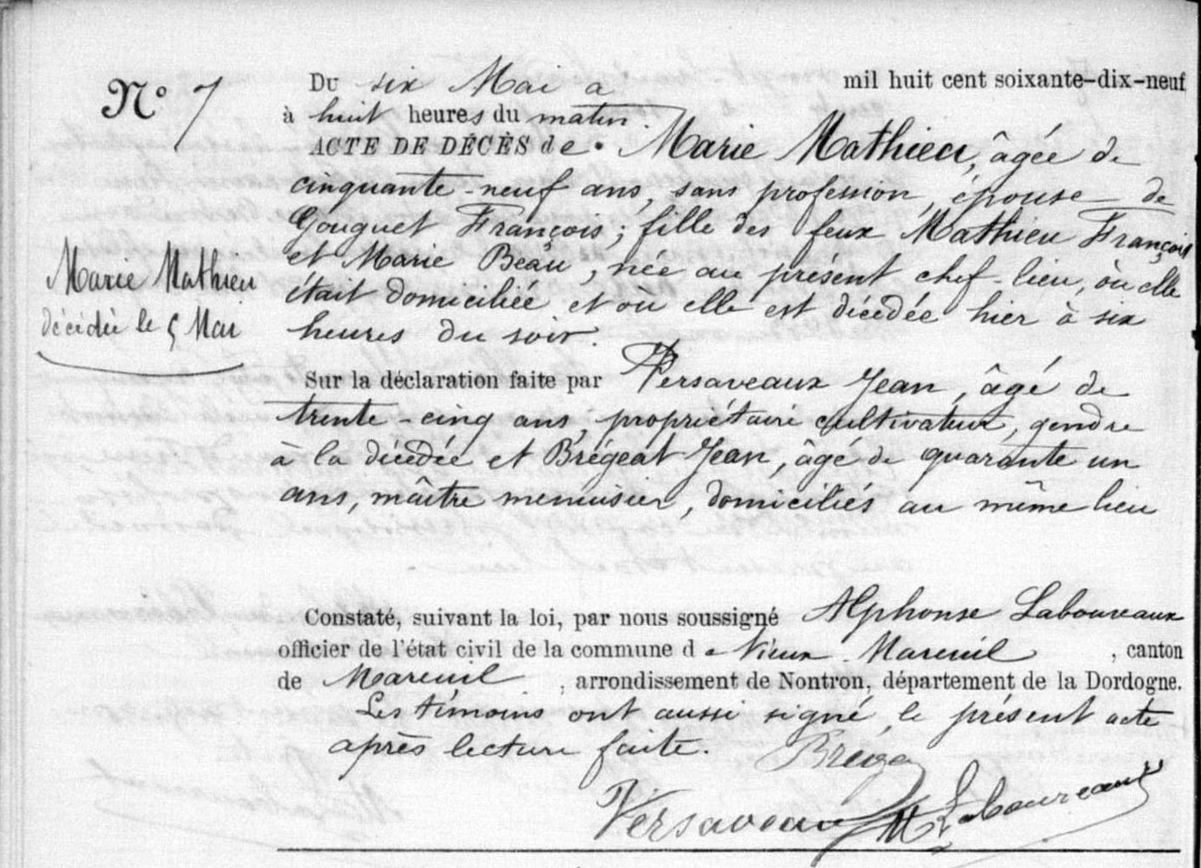 N° 7
Du six Mai a mil huit cent soixante-dix-neuf
à huit heures du matin.
ACTE DE DÉCÈS de. Marie Mathieu, âgée de
cinquante-neuf ans, sans profession, épouse de
Gouguet François; fille des feux Mathieu François
et Marie Beau, née au présent chef-lieu, où elle
Marie Mathieu
décédée le 5 Mai
était domiciliée et où elle est décédée hier à six
heures du soir.
Sur la déclaration faite par Versaveaux Jean, âgé de
trente-cinq ans, propriétaire cultivateur, gendre
à la décédée et Brégeat Jean, âgé de quarante un
ans, maître menuisier, domiciliés au même lieu
Constaté, suivant la loi, par nous soussigné Alphonse Laboureaux
officier de l'état civil de la commune de Vieux Mareuil, canton
de Mareuil, arrondissement de Nontron, département de la Dordogne.
Les témoins ont aussi signé le présent acte
après lecture faite.
Versaveau